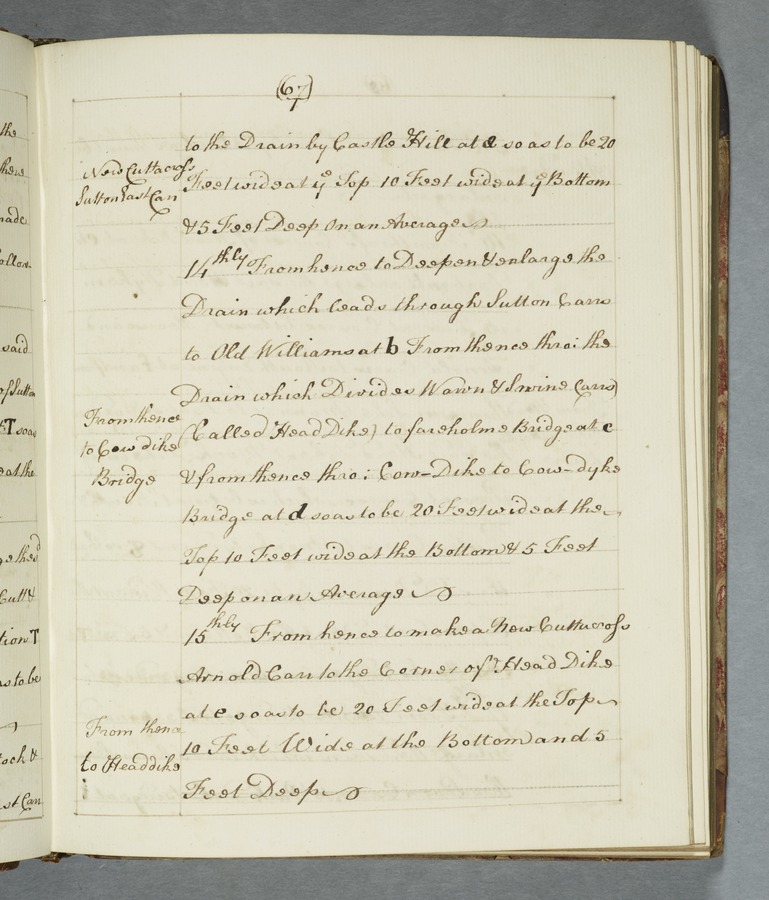 (67)
to the Drain by Castle Hill at a so as to be 20
New Cutt across
Sutton East Carr
Feet wide at ye Top 10 Feet wide at ye Bottom
& 5 Feet Deep on an Average
14thly From hence to Deepen & enlarge the
Drain which leads through Sutton Carrs
to Old Williams at b From thence thro: the
Drain which Divides Wawn & Swine Carrs
From thence
to Cow dike
Bridge
(Called Head Dike) to fareholme Bridge at c
& from thence thro: Cow-Dike to Cow-dyke
Bridge at d so as to be 20 Feet wide at the
Top 10 Feet wide at the Bottom & 5 Feet
Deep on an Average
15thly From hence to make a New Cutt across
Arnold Carr to the Corner of Head Dike
at e so as to be 20 Feet wide at the Top
From thence
to Headdike
10 Feet Wide at the Bottom and 5
Feet Deep
the
there
made
said
of Sutton
T so as
e at the
Cutt &
tion T
as to be
st Carr